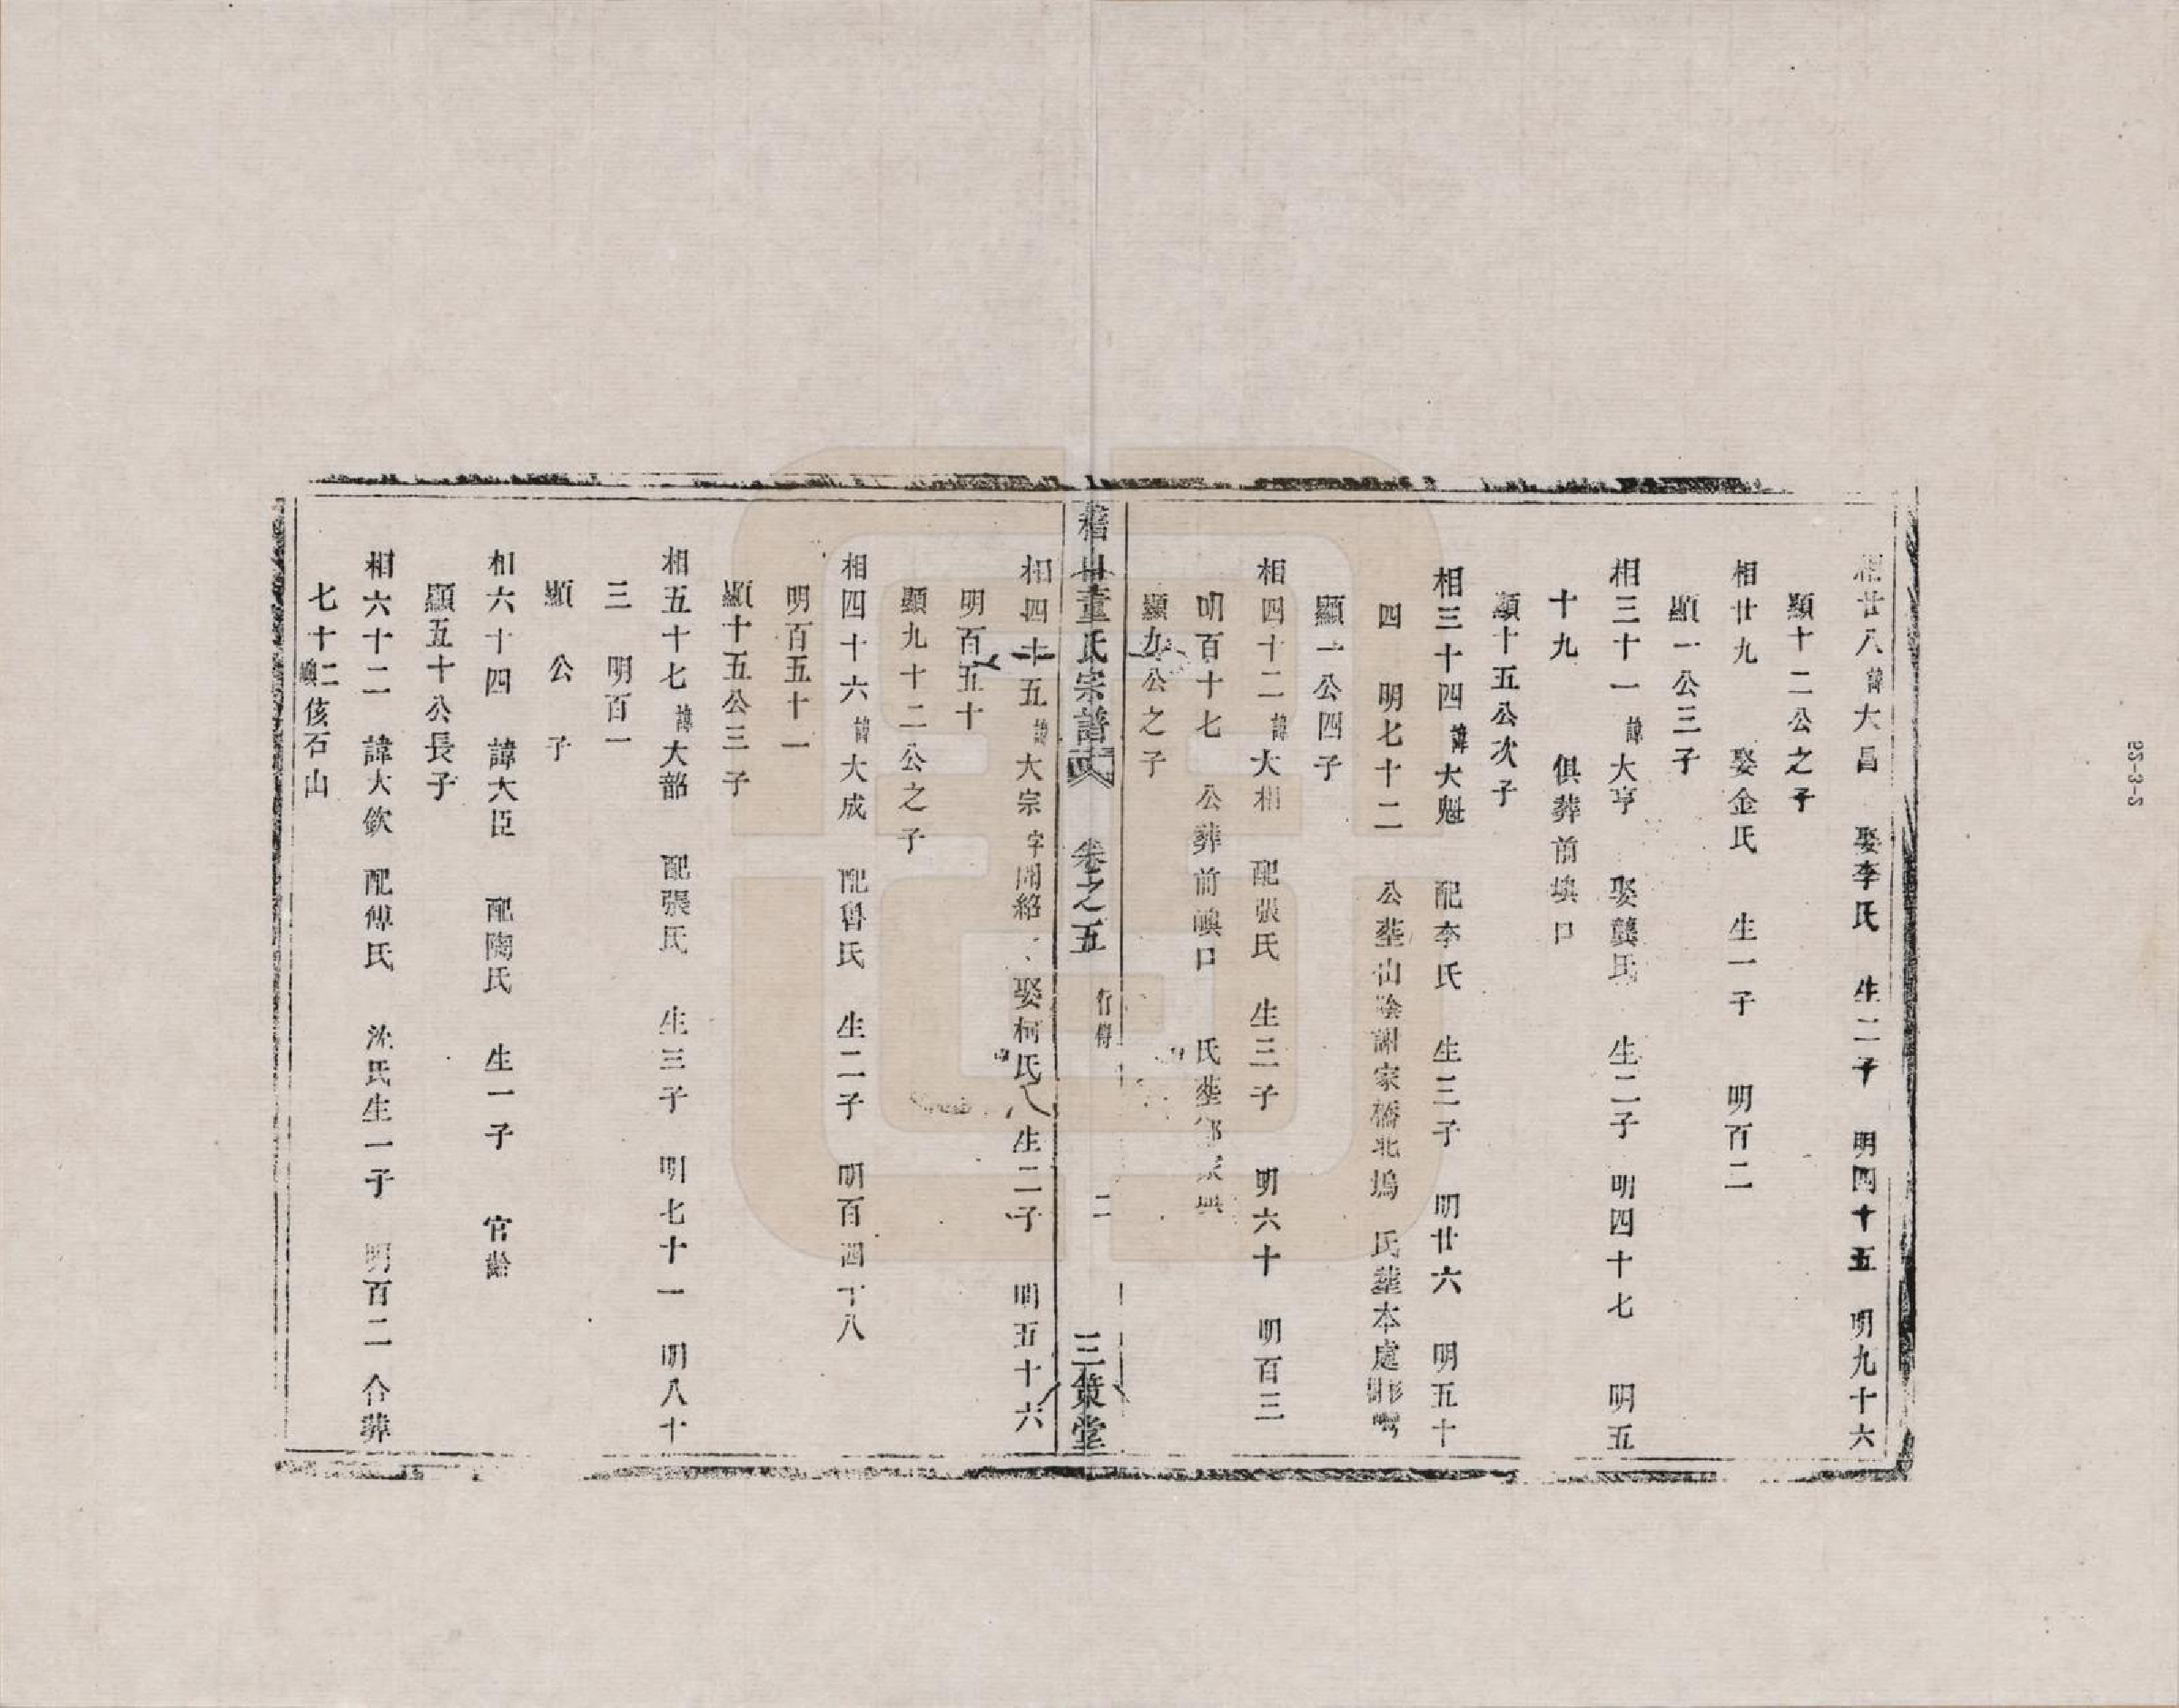 相廿八諱大昌 娶李氏 生二子 明四十五 明九十六
顯十二公之子
相廿九 娶金氏 生一子 明百二
顯一公三子
相三十一諱大亨 娶龔氏 生二子 明四十七 明五
十九 俱葬前塽口
顯十五公次子
相三十四諱大魁 配李氏 生三子 明廿六 明五十
四 明七十二 公塟山陰謝家橋北塢 氏塟本處
顯一公四子
相四十二諱大相 配張氏 生三子 明六十 明百三
明百十七 公葬前口 氏塟
顯九公之子
董氏宗譜 卷之五 行傳 二 三策堂
相四十五諱大宗字開紹 娶柯氏 生二子 明五十六
明百五十
顯九十二公之子
相四十六諱大成 配魯氏 生二子 明百四十八
明百五十一
顯十五公三子
相五十七諱大韶 配張氏 生三子 明七十一 明八十
三 明百一
顯 公 子
相六十四 諱大臣 配陶氏 生一子 官齡
顯五十公長子
相六十二 諱大欽 配傅氏 沈氏生一子 明百二 合葬
七十二 石山